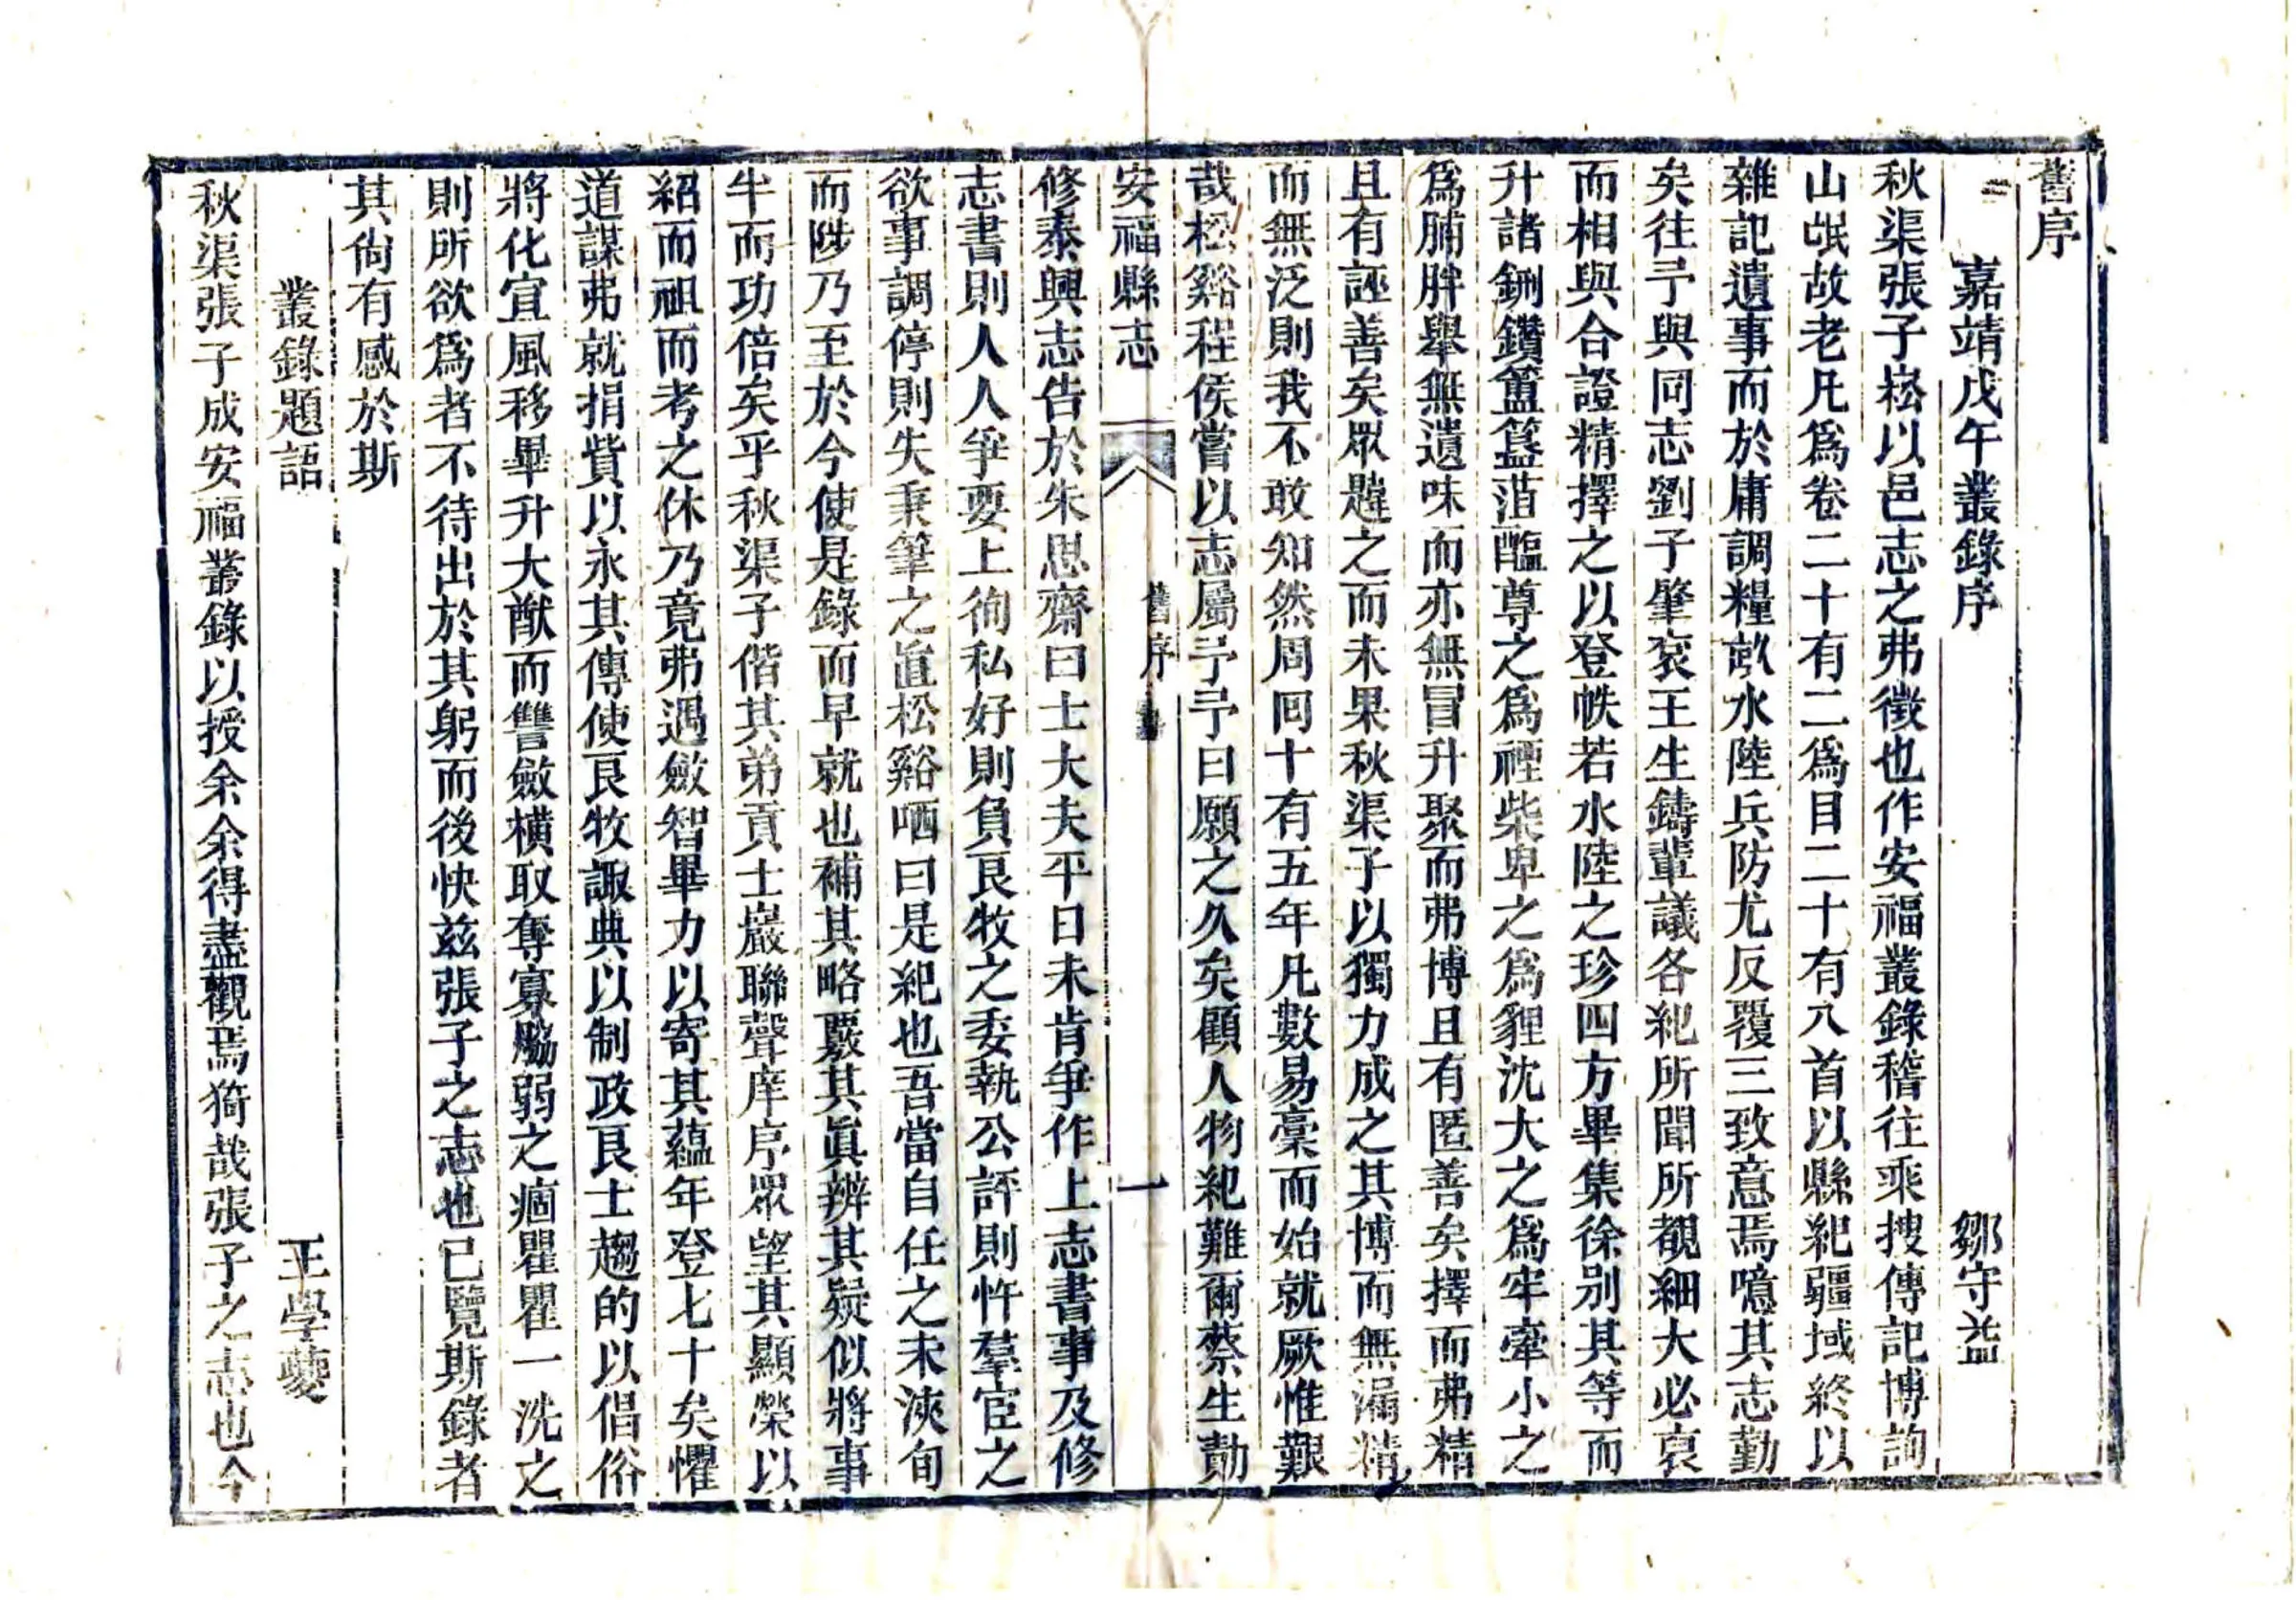 舊序
嘉靖戊午叢錄序 鄒守益
秋渠張子崧以邑志之弗徵也作安福叢錄稽往乘搜傳記博詢
山氓故老凡爲卷二十有二爲目二十有八首以縣紀疆域終以
雜記遺事而於庸調糧畝水陸兵防尤反覆三致意焉噫其志勤
矣往予與同志劉子肇袞王生鑄輩議各紀所聞所覩細大必裒
而相與合證精擇之以登帙若水陸之珍四方畢集徐別其等而
升諸鉶鑽簠簋菹醢尊之爲禋柴卑之爲貍沈大之爲牢牽小之
爲腩胖舉無遺味而亦無冒升聚而弗博且有匿善矣擇而弗精
且有誣善矣眾韙之而未果秋渠子以獨力成之其博而無漏精
而無泛則我不敢知然周囘十有五年凡數易稾而始就厥惟艱
哉松谿程侯嘗以志屬予予曰願之久矣顧人物紀難爾蔡生勛
安福縣志 舊序 一
修泰興志告於朱思齋曰士大夫平日未肯爭作上志書事及修
志書則人人爭要上徇私好則負良牧之委執公評則忤羣宦之
欲事調停則失秉筆之直松谿哂曰是紀也吾當自任之未浹旬
而陟乃至於今使是錄而早就也補其略覈其眞辨其疑似將事
半而功倍矣乎秋渠子偕其弟貢士巖聯聲庠序眾望其顯榮以
紹而祖而考之休乃竟弗遇斂智畢力以寄其蘊年登七十矣懼
道謀弗就捐貲以永其傳使良牧諏典以制政良士趨的以倡俗
將化宜風移畢升大猷而讐斂橫取奪寡脇弱之痼瞿瞿一洗之
則所欲爲者不待出於其躬而後快兹張子之志也已覽斯錄者
其尙有感於斯
叢錄題語 王學夔
秋渠張子成安福叢錄以授余余得盡觀焉猗哉張子之志也今